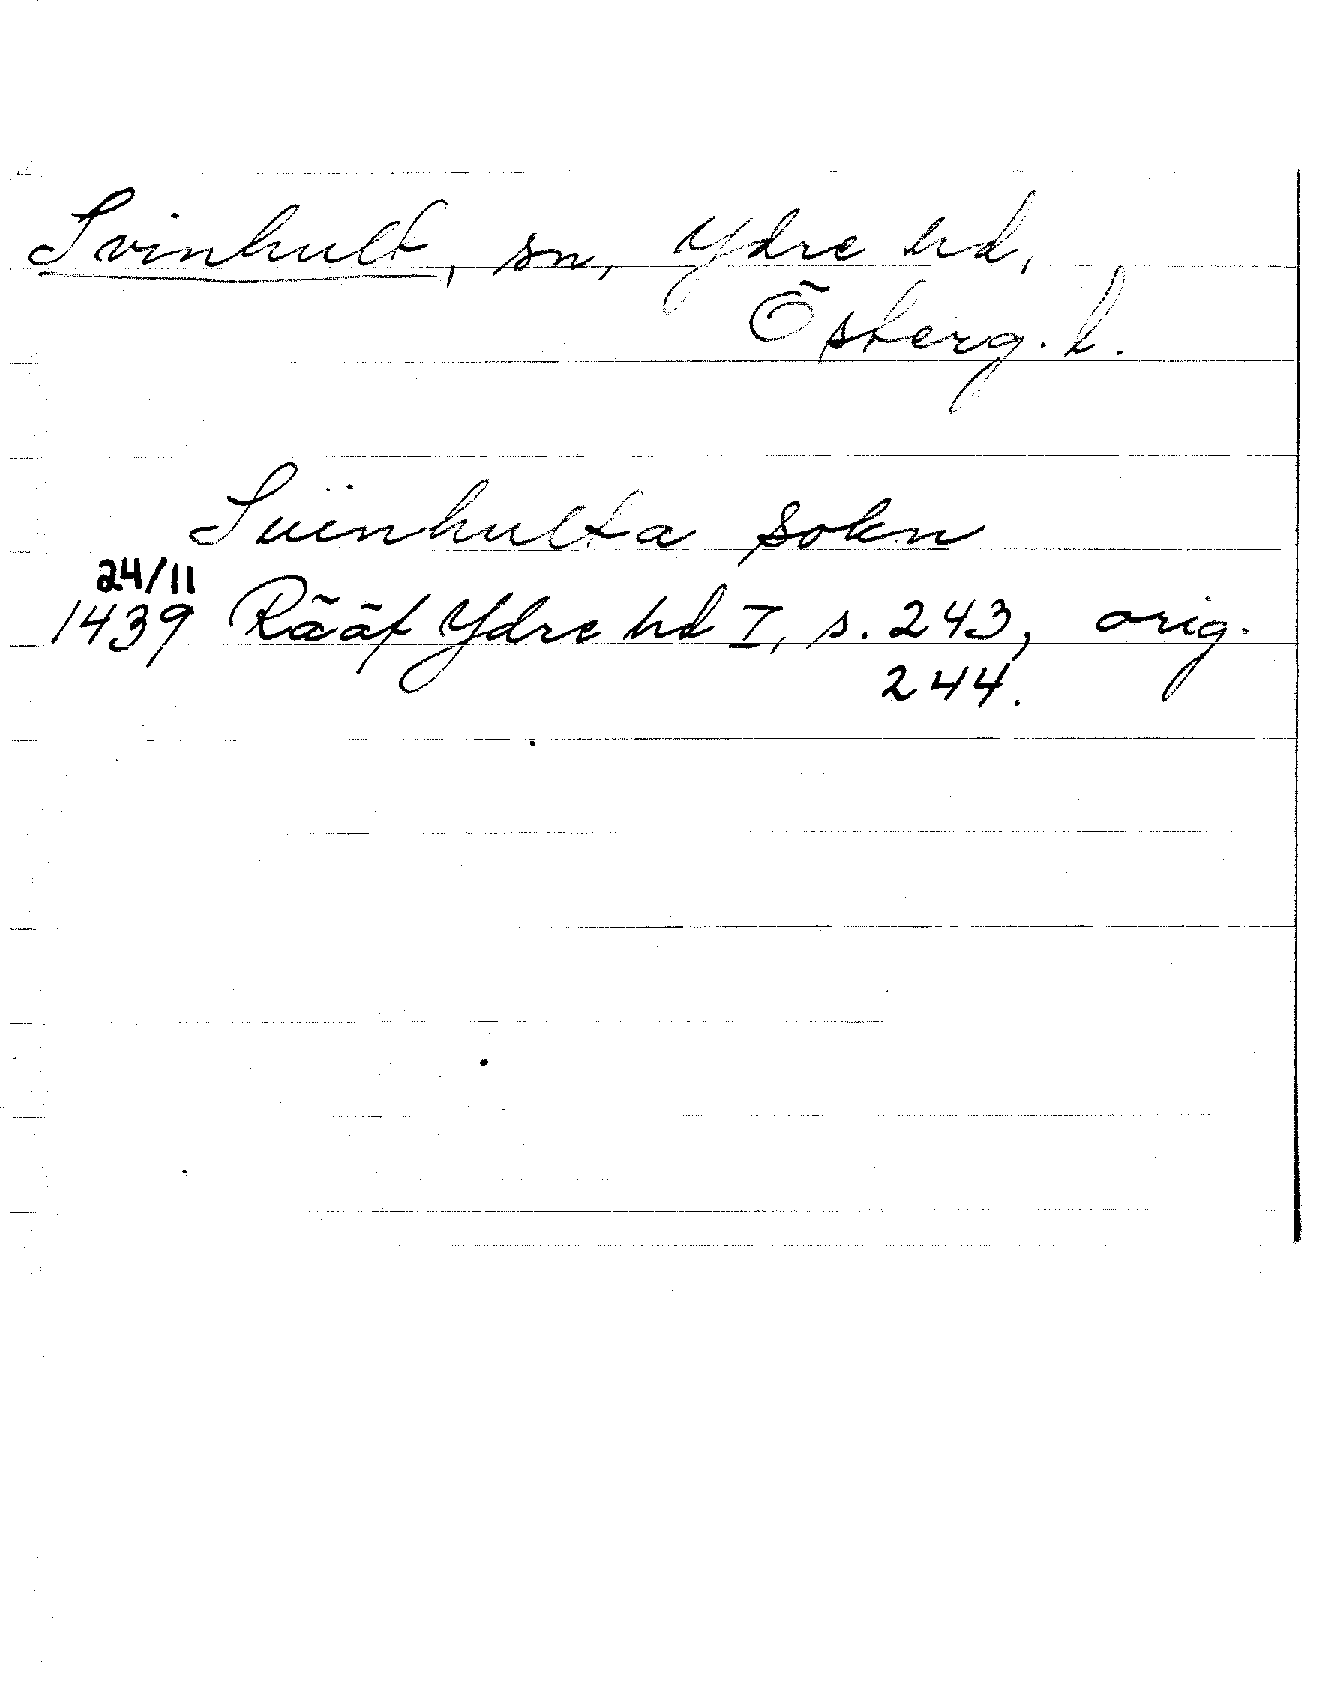 Svinhult, sn, Ydre hd,
Österg. l.
Süinhulta sokn
24/11
1439 Rääf Ydre hd I, s. 243, orig.
244.